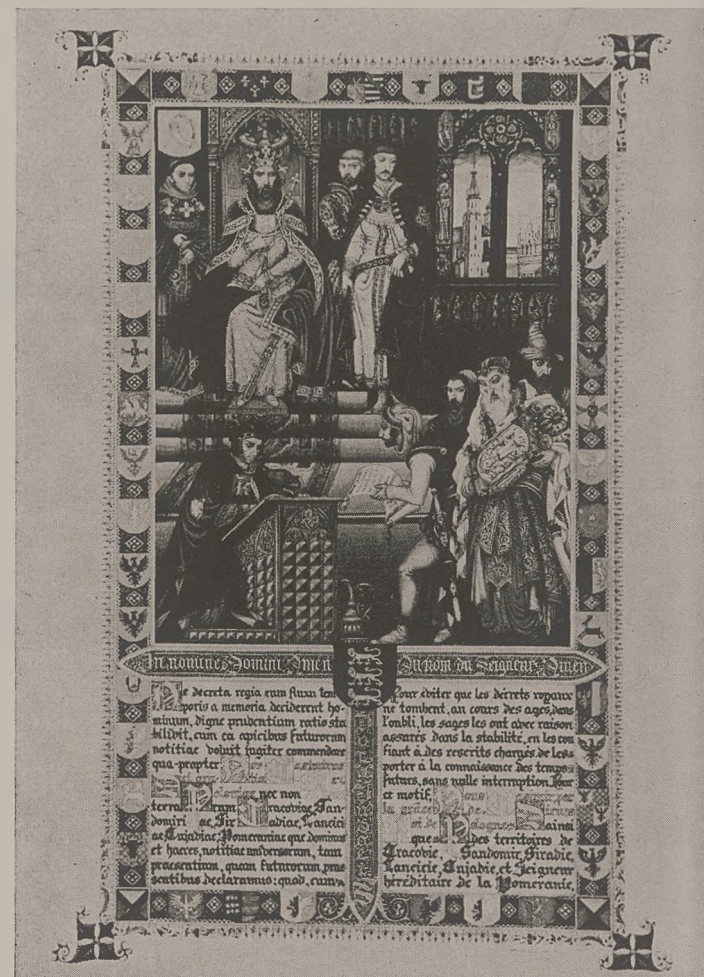 In nomine Domini Amen
Au nom du Seigneur Amen
Ne decreta regia cum fluxu tem
poris a memoria deciderent ho-
minum, digne prudentium ratio sta
bilivit, cum ea apicibus futurorum
notitiae voluit jugiter commendare
qua-propter
nec non
terrarum Cracoviae, San-
domiri ae Siradiae, Lancici
ae Cujadiae, Pomeraniae que dominus
et haeres, notitiae universorum, tam
praesentium, quam futurorum, prae
sentibus declaramus: quod, cum
Pour éviter que les décrets royaux
ne tombent, au cours des ages, dans
l'oubli, les sages les ont avec raison
assurés dans la stabilité, en les con
fiant à des rescrits chargés de les
porter à la connaissance des temps
futurs, sans nulle interruption Pour
ce motif,
ainsi
que des territoires de
Cracovie, Sandomir, Siradie,
Lancicie, Cujadie, et Seigneur
héréditaire de la Pomeranie,